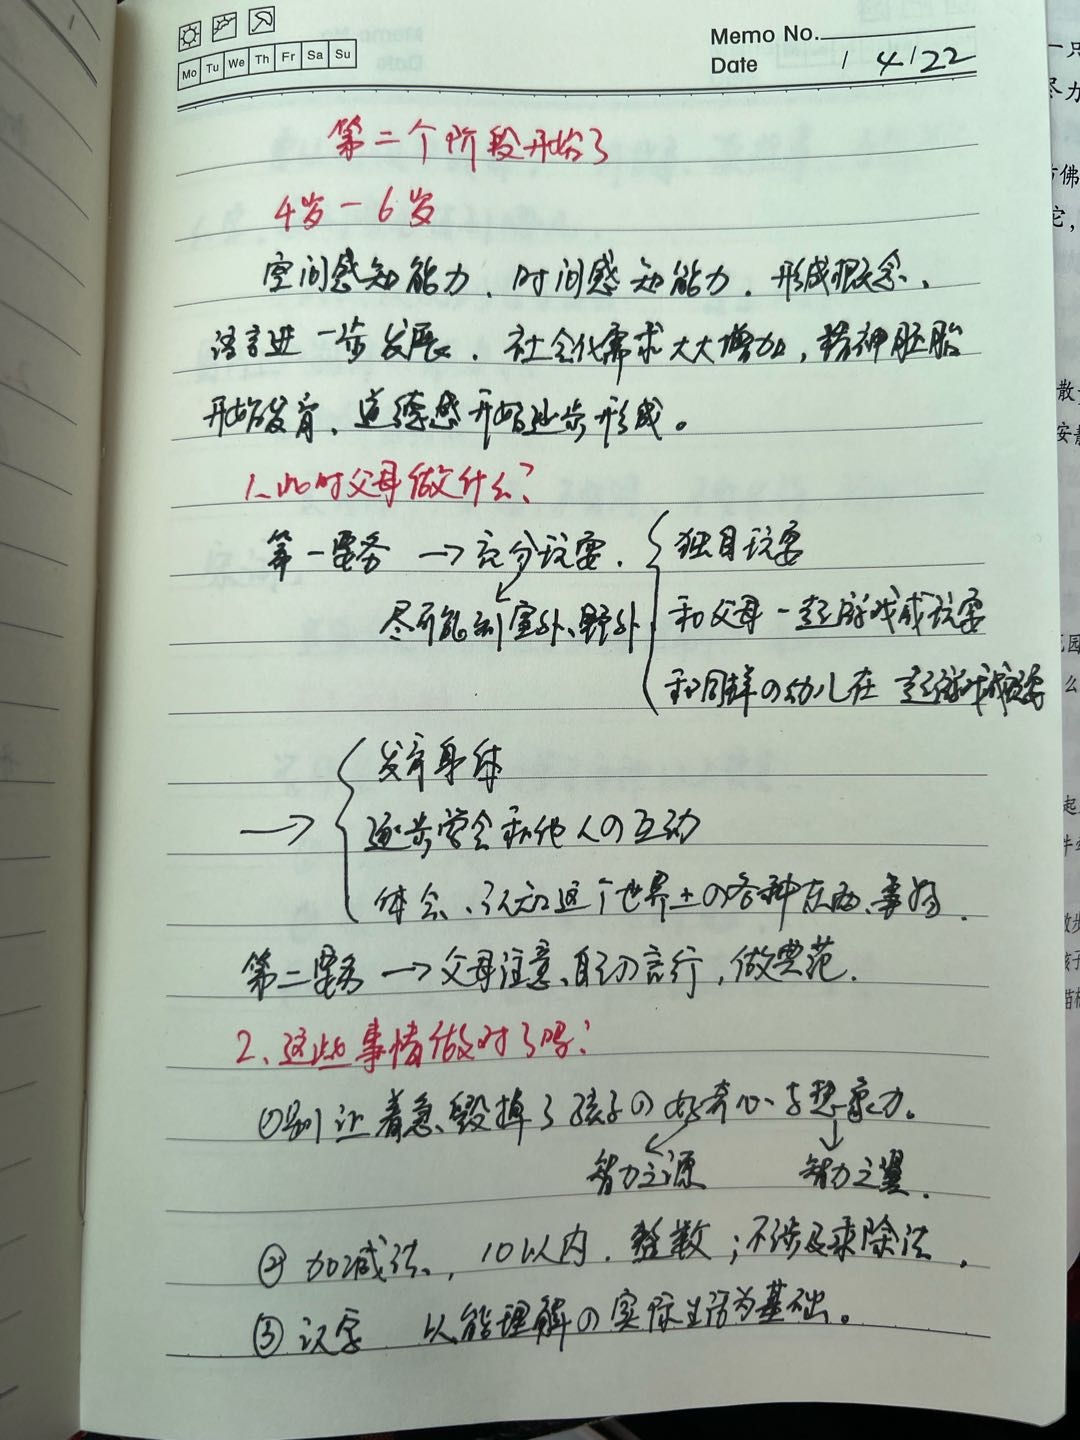 Mo Tu We Th Fr Sa Su
Memo No.
Date / 4/22
第二个阶段开始了
4岁－6岁
空间感知能力、时间感知能力、形成概念、
语言进一步发展、社会化需求大大增加，精神胚胎
开始发育、道德感开始逐步形成。
1、此时父母做什么？
第一要务 → 充分玩耍.
独自玩耍
尽可能到室外、野外
和父母一起游戏或玩耍
和同样の幼儿在一起游戏或玩耍
→ 发育身体
逐步学会和他人の互动
体会、认知这个世界上の各种东西、事物.
第二要务 → 父母注意、自己の言行，做典范.
2、这些事情做对了吗？
①别让着急毁掉了孩子の好奇心与想象力。
智力之源 智力之翼.
② 加减法，10以内．整数；不涉及乘除法．
③ 识字 以能理解の实际生活为基础。
一只
尽力
佛
它，
散
安
园
么
起